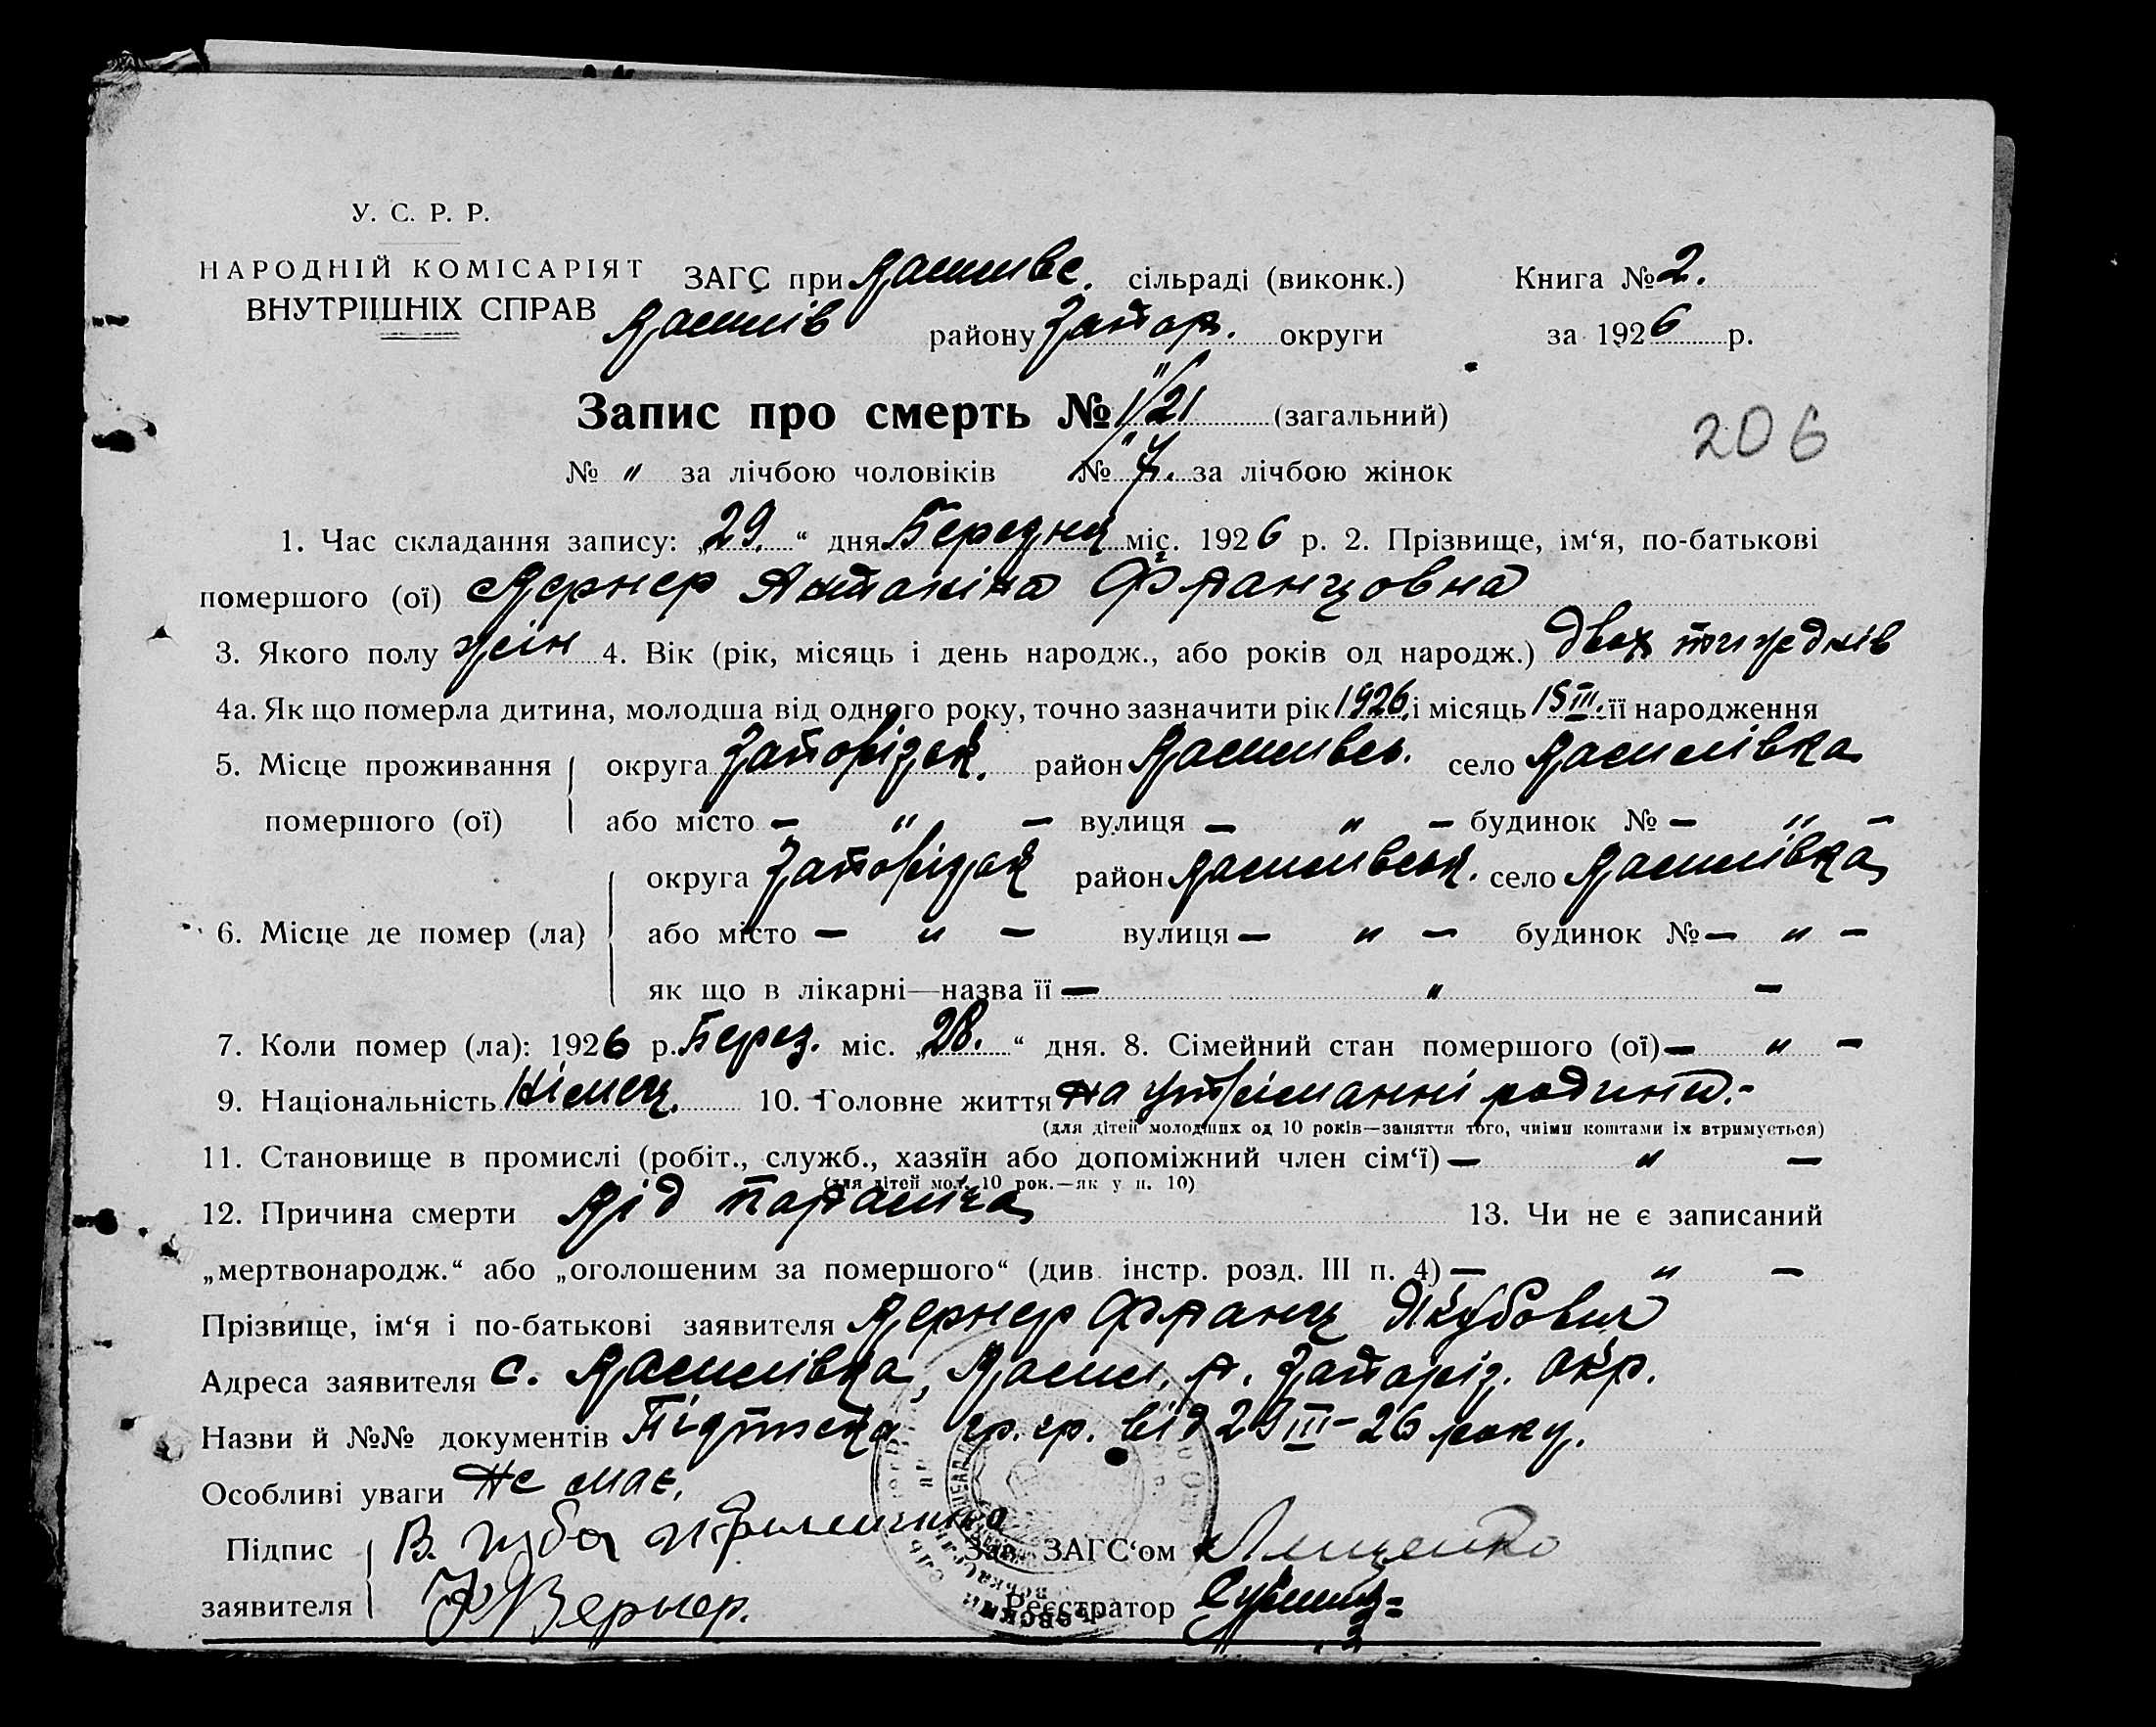 У. С. Р. Р.
НАРОДНІЙ КОМІСАРІЯТ
ВНУТРІШНІХ СПРАВ
ЗАГС при Василівс. сільраді (виконк.) Книга № 2.
Василів району Запор. округи за 1926 р.
Запис про смерть № 21 (загальний)
206
№ " за лічбою чоловіків № за лічбою жінок
1. Час складання запису: „29.“ дня Березня міс. 1926 р. 2. Прізвище, ім‘я, по-батькові
помершого (ої) Вернер Антоніна Францовна
3. Якого полу жін 4. Вік (рік, місяць і день народж., або років од народж.) двох тижднів
4а. Як що померла дитина, молодша від одного року, точно зазначити рік 1926 і місяць 15 III. її народження
5. Місце проживання округа Запорізьк. район Василівсь. село Василівка
помершого (ої) або місто — " — вулиця — " — будинок № — " —
округа Запорізьк район Василівськ. село Василівка
6. Місце де помер (ла) або місто — " — вулиця — " — будинок № — " —
як що в лікарні—назва її — " —
7. Коли помер (ла): 1926 р. Берез. міс. „28.“ дня. 8. Сімейний стан помершого (ої) — " —
9. Національність Німец. 10. Головне життя на утріманні родини.-
(для дітей молодших од 10 років—заняття того, чиїми коштами їх втримується)
11. Становище в промислі (робіт., служб., хазяїн або допоміжний член сім‘ї) — " —
(для дітей мол. 10 рок.—як у п. 10)
12. Причина смерти Від параліча 13. Чи не є записаний
„мертвонародж.“ або „оголошеним за помершого“ (див. інстр. розд. III п. 4) — " —
Прізвище, ім‘я і по-батькові заявителя Вернер Франц Якубович
Адреса заявителя с. Василівка, Васил. р. Запоріз. окр.
Назви й №№ документів Підписка гр. гр. від 29 III-26 року.
Особливі уваги Не має.
Підпис В. Зав. ЗАГС‘ом Лященко
заявителя Ф Вернер. Реєстратор